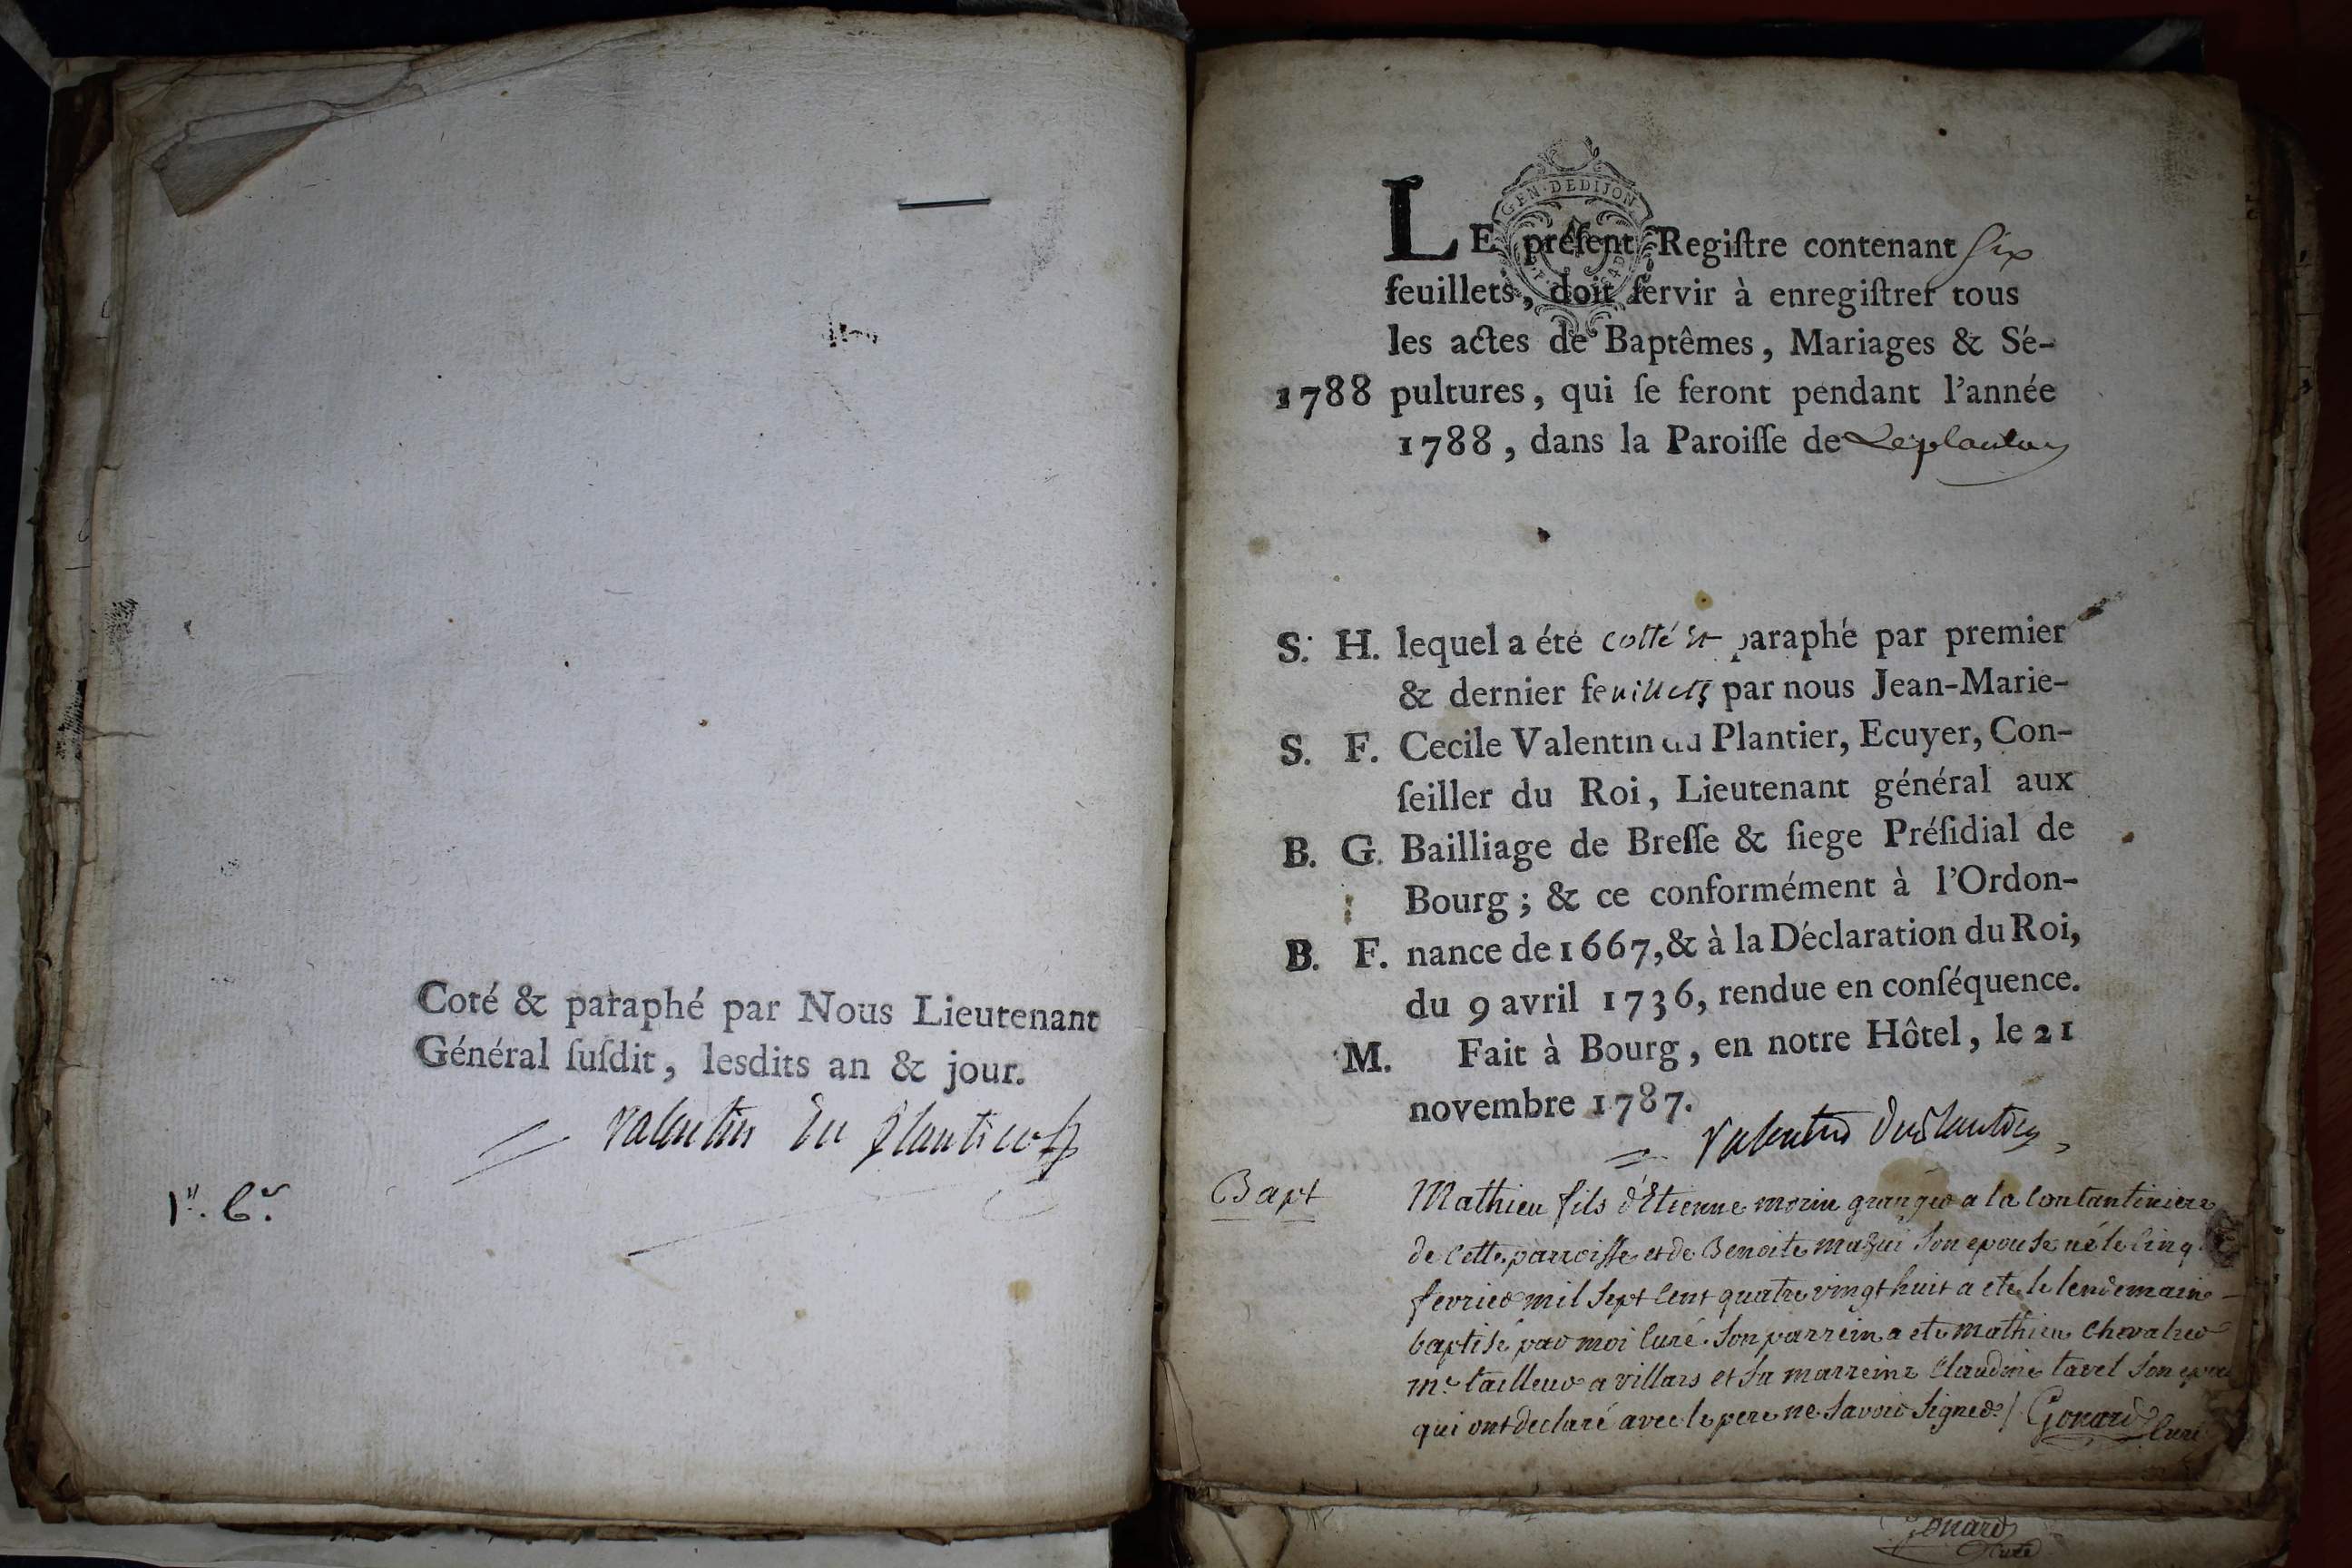 Coté & paraphé par Nous Lieutenant
Général ſuſdit, lesdits an & jour.
Valentin Du Plantier
1er. 6e.
GEN·DEDIJON
LE préſent Regiſtre contenant Six
feuillets, doit ſervir à enregiſtrer tous
les actes de Baptêmes, Mariages & Sé-
1788 pultures, qui ſe feront pendant l'année
1788, dans la Paroiſſe de Leplantay
S. H. lequel a été cotté et paraphé par premier
& dernier feuillets par nous Jean-Marie-
S. F. Cecile Valentin du Plantier, Ecuyer, Con-
ſeiller du Roi, Lieutenant général aux
B. G. Bailliage de Breſſe & ſiege Préſidial de
Bourg; & ce conformément à l'Ordon-
B. F. nance de 1667, & à la Déclaration du Roi,
du 9 avril 1736, rendue en conſéquence.
M. Fait à Bourg, en notre Hôtel, le 21
novembre 1787.
Valentin Duplantier
Bapt Mathieu fils d'Etienne morin granger a la
de cette parroisse et de Benoite son epouse né le cinq
fevrier mil sept cent quatre vingt huit a ete le lendemain
baptisé par moi curé. son parrein a ete mathieu chevalier
me. tailleur a villars et sa marreine claudine tavel son
qui ont declaré avec le pere ne savoir signer. / Gonard curé
Gonard
curé